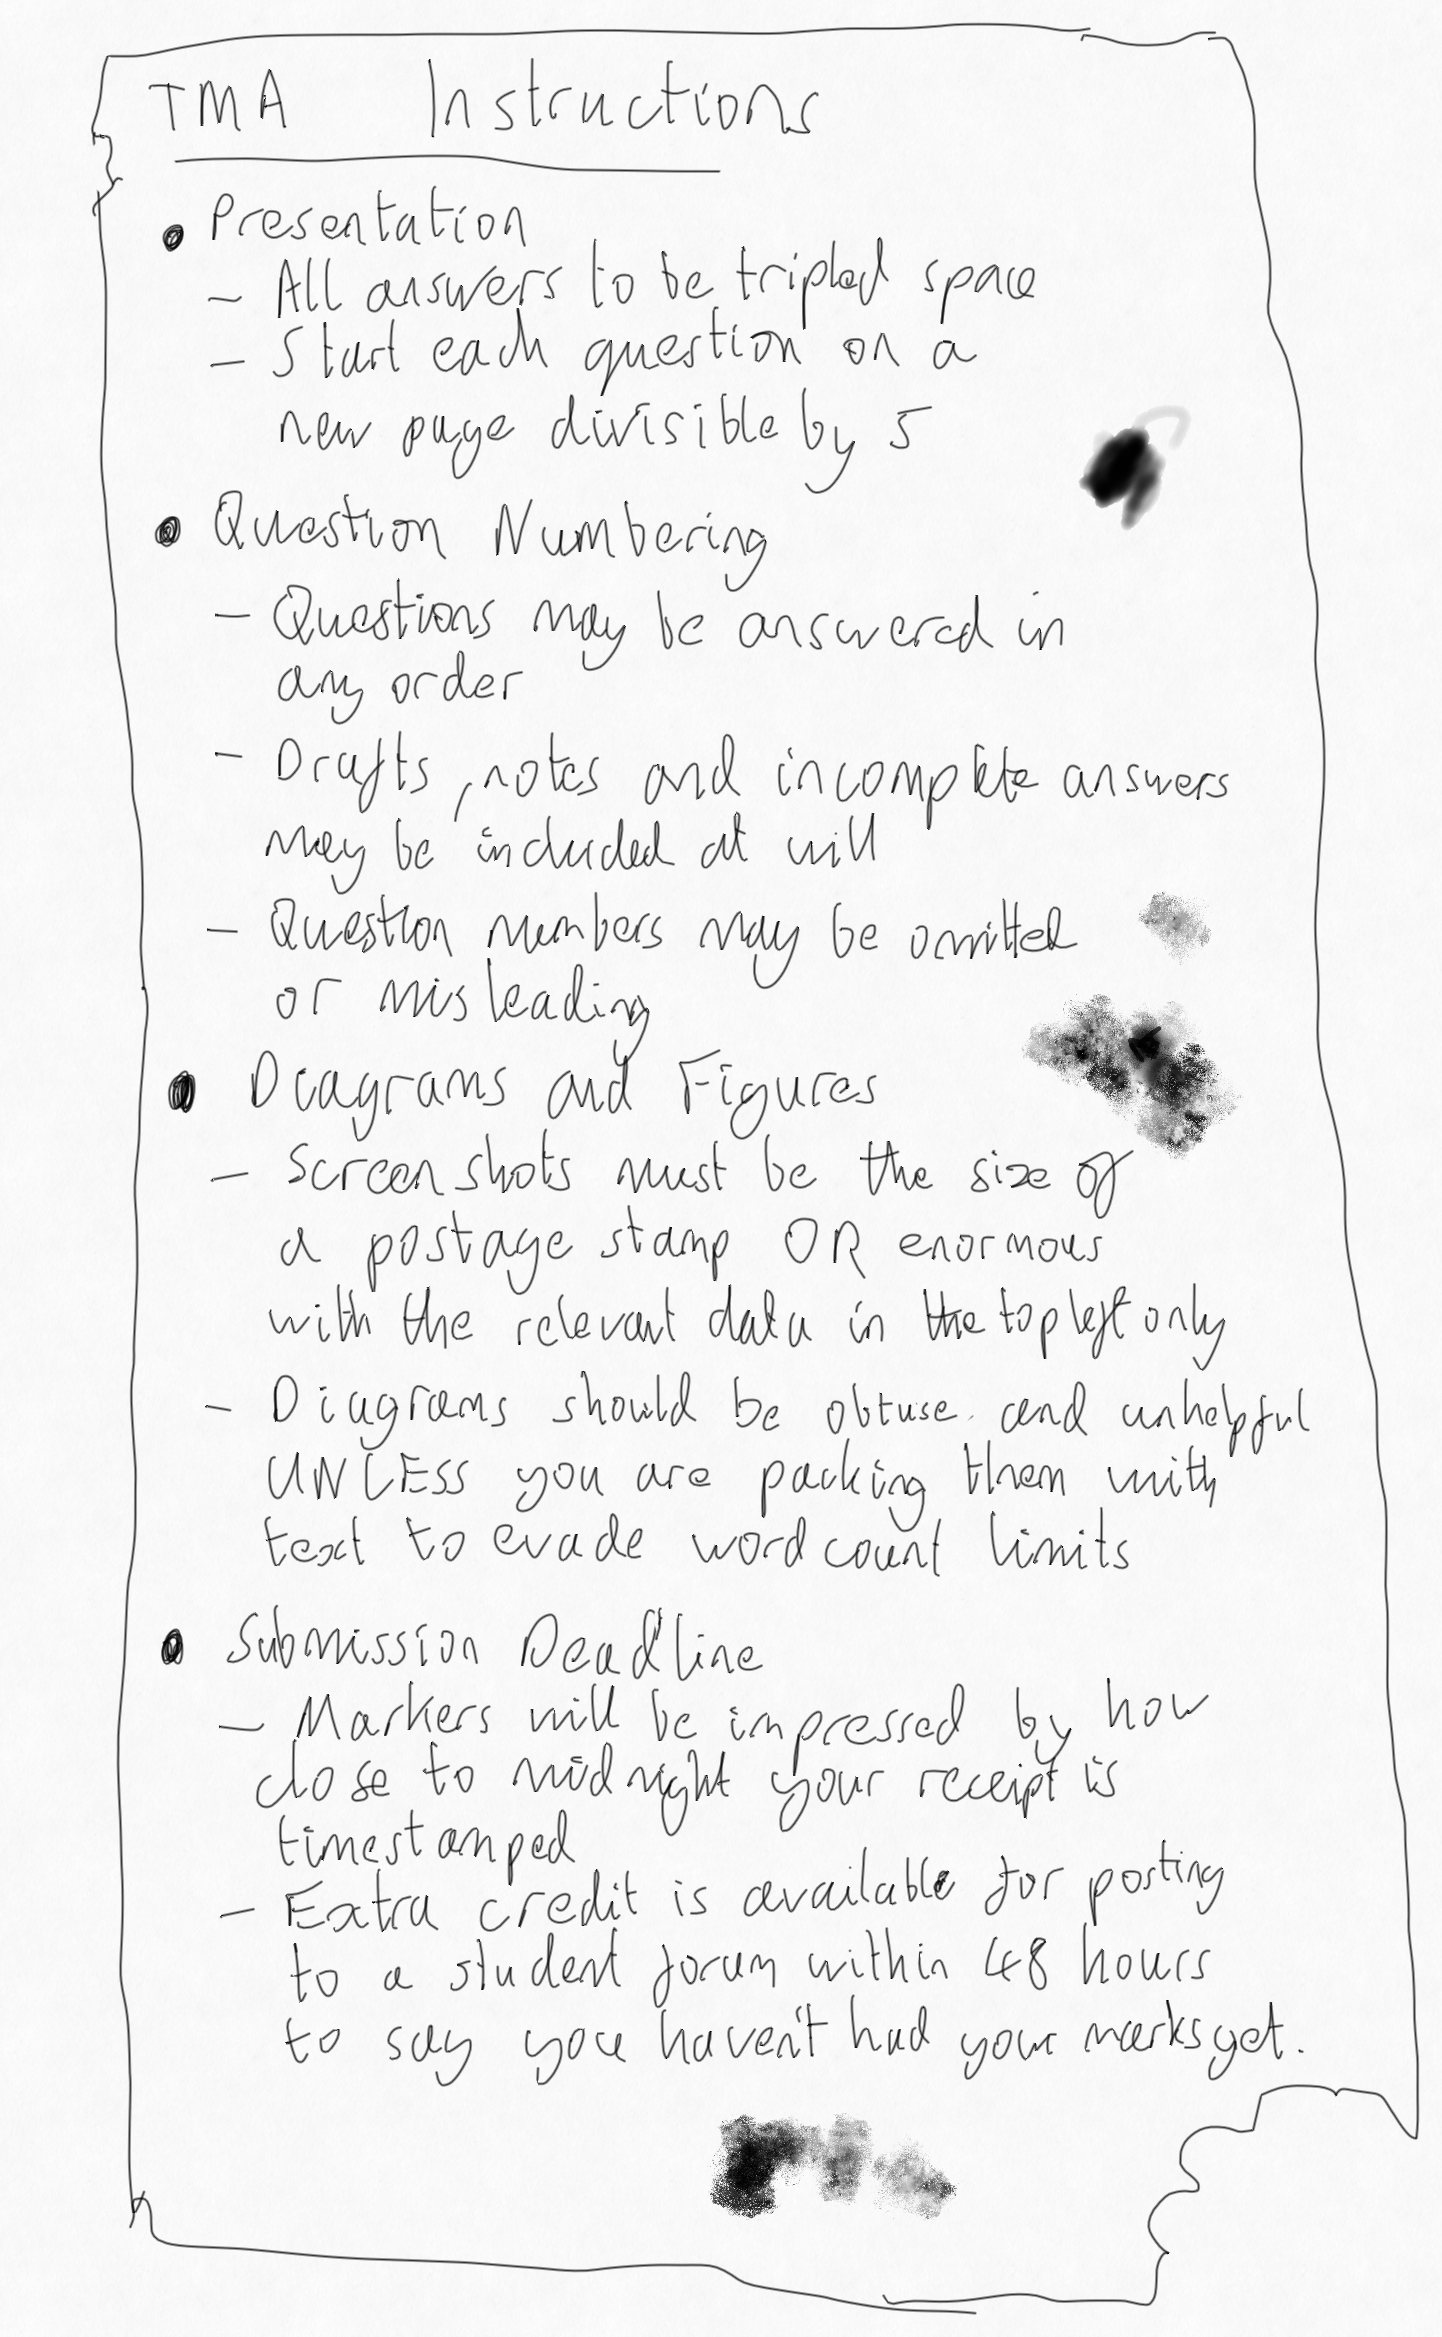 TMA Instructions
• Presentation
- All answers to be tripled space
- Start each question on a
new page divisible by 5
• Question Numbering
- Questions may be answered in
any order
- Drafts, notes and incomplete answers
may be included at will
- Question numbers may be omitted
or misleading
• Diagrams and Figures
- Screenshots must be the size of
a postage stamp OR enormous
with the relevant data in the top left only
- Diagrams should be obtuse and unhelpful
UNLESS you are packing them with
text to evade word count limits
• Submission Deadline
- Markers will be impressed by how
close to midnight your receipt is
timestamped
- Extra credit is available for posting
to a student forum within 48 hours
to say you haven't had your marks yet.